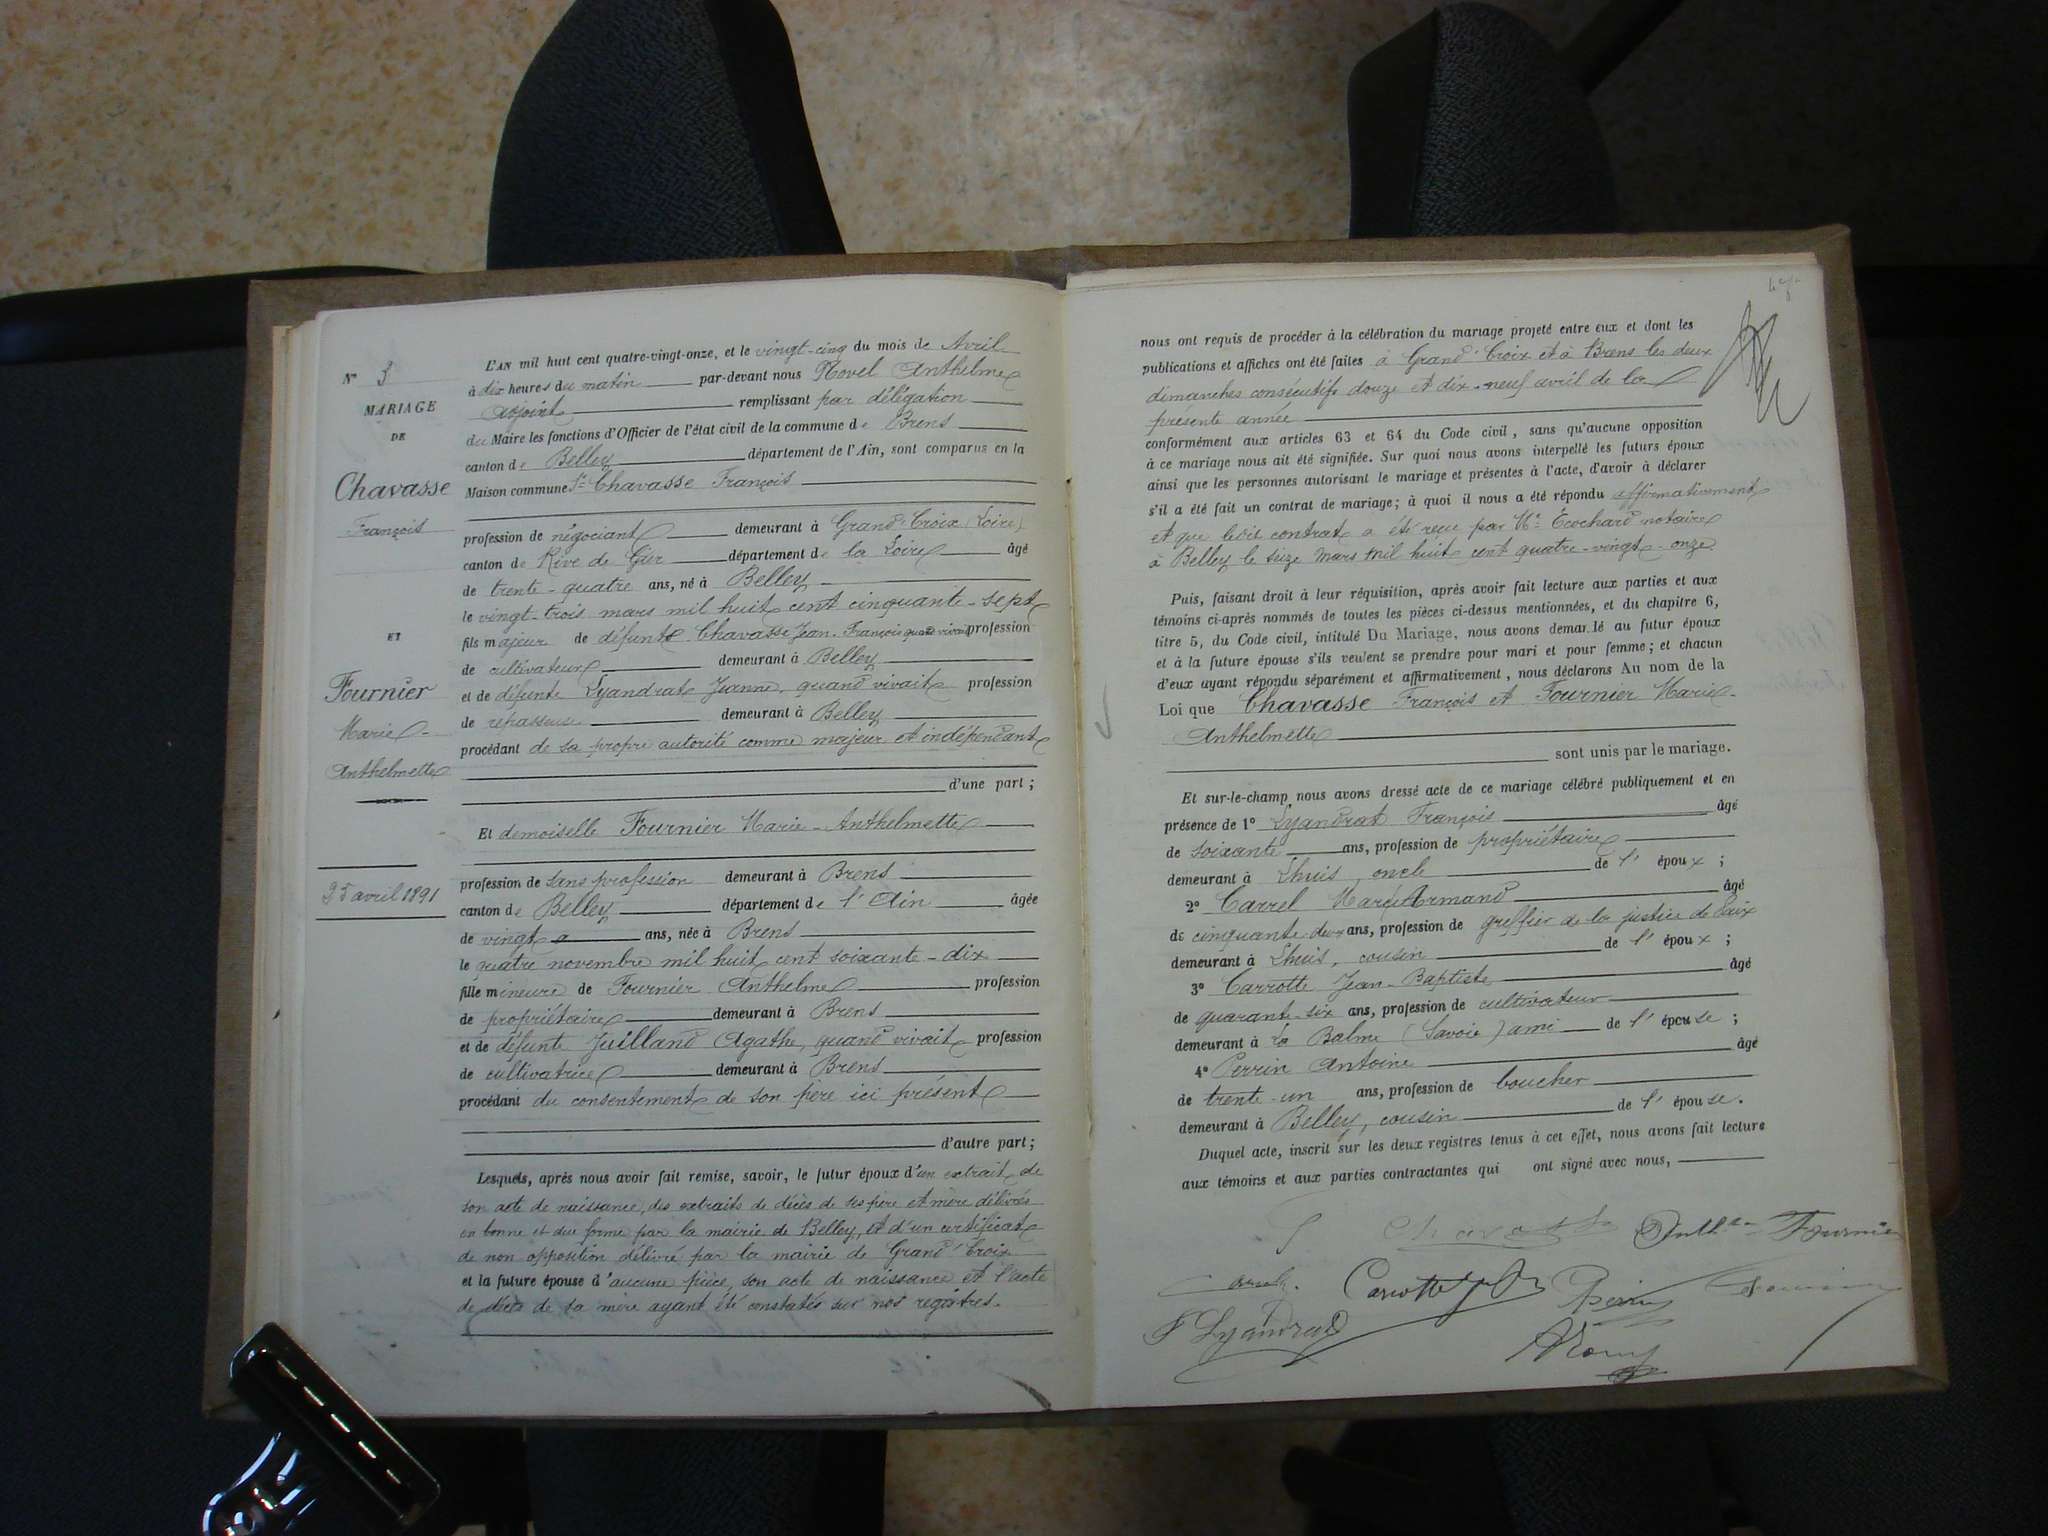 N° 3
MARIAGE
DE
Chavasse
François
ET
Fournier
Marie
Anthelmette
25 avril 1891
L'AN mil huit cent quatre-vingt-onze, et le vingt-cinq du mois de Avril
à dix heures du matin par-devant nous Anthelme
adjoint remplissant par délégation
du Maire les fonctions d'Officier de l'état civil de la commune de Brens
canton de Belley département de l'Ain, sont comparus en la
Maison commune Sr Chavasse François
profession de négociant demeurant à Grand'Croix (Loire)
canton de Rive de Gier département de la Loire âgé
de trente-quatre ans, né à Belley
le vingt-trois mars mil huit cent cinquante-sept
fils majeur de défunt Chavasse Jean-François quand vivait profession
de cultivateur demeurant à Belley
et de défunte Lyandrat Jeanne, quand vivait profession
de repasseuse demeurant à Belley
procédant de sa propre autorité comme majeur et indépendant
d'une part ;
Et demoiselle Fournier Marie-Anthelmette
profession de sans profession demeurant à Brens
canton de Belley département de l'Ain âgée
de vingt ans, née à Brens
le quatre novembre mil huit cent soixante-dix
fille mineure de Fournier Anthelme profession
de propriétaire demeurant à Brens
et de défunte Juilland Agathe, quand vivait profession
de cultivatrice demeurant à Brens
procédant du consentement de son père ici présent
d'autre part ;
Lesquels, après nous avoir fait remise, savoir, le futur époux d'un extrait de
son acte de naissance, des extraits de décès de ses père et mère délivrés
en bonne et due forme par la mairie de Belley, et d'un certificat
de non opposition délivré par la mairie de Grand'Croix
et la future épouse d'aucune pièce, son acte de naissance et l'acte
de décès de sa mère ayant été constatés sur nos registres.
nous ont requis de procéder à la célébration du mariage projeté entre eux et dont les
publications et affiches ont été faites à Grand'Croix et à Brens les deux
dimanches consécutifs douze et dix-neuf avril de la
présente année
conformément aux articles 63 et 64 du Code civil, sans qu'aucune opposition
à ce mariage nous ait été signifiée. Sur quoi nous avons interpellé les futurs époux
ainsi que les personnes autorisant le mariage et présentes à l'acte, d'avoir à déclarer
s'il a été fait un contrat de mariage ; à quoi il nous a été répondu affirmativement
et que ledit contrat a été reçu par Me Ecochard notaire
à Belley le seize mars mil huit cent quatre-vingt-onze
Puis, faisant droit à leur réquisition, après avoir fait lecture aux parties et aux
témoins ci-après nommés de toutes les pièces ci-dessus mentionnées, et du chapitre 6,
titre 5, du Code civil, intitulé Du Mariage, nous avons demandé au futur époux
et à la future épouse s'ils veulent se prendre pour mari et pour femme ; et chacun
d'eux ayant répondu séparément et affirmativement, nous déclarons Au nom de la
Loi que Chavasse François et Fournier Marie-
Anthelmette
sont unis par le mariage.
Et sur-le-champ nous avons dressé acte de ce mariage célébré publiquement et en
présence de 1° Lyandrat François âgé
de soixante ans, profession de propriétaire
demeurant à Lhuis, oncle de l'époux ;
2° Carrel Armand âgé
de cinquante-deux ans, profession de greffier de la justice de Paix
demeurant à Lhuis, cousin de l'époux ;
3° Carrotte Jean-Baptiste âgé
de quarante-six ans, profession de cultivateur
demeurant à La Balme (Savoie) ami de l'épouse ;
4° Perrin Antoine âgé
de trente-un ans, profession de boucher
demeurant à Belley, cousin de l'épouse.
Duquel acte, inscrit sur les deux registres tenus à cet effet, nous avons fait lecture
aux témoins et aux parties contractantes qui ont signé avec nous,
Fournier
Perrin
F Lyandrat